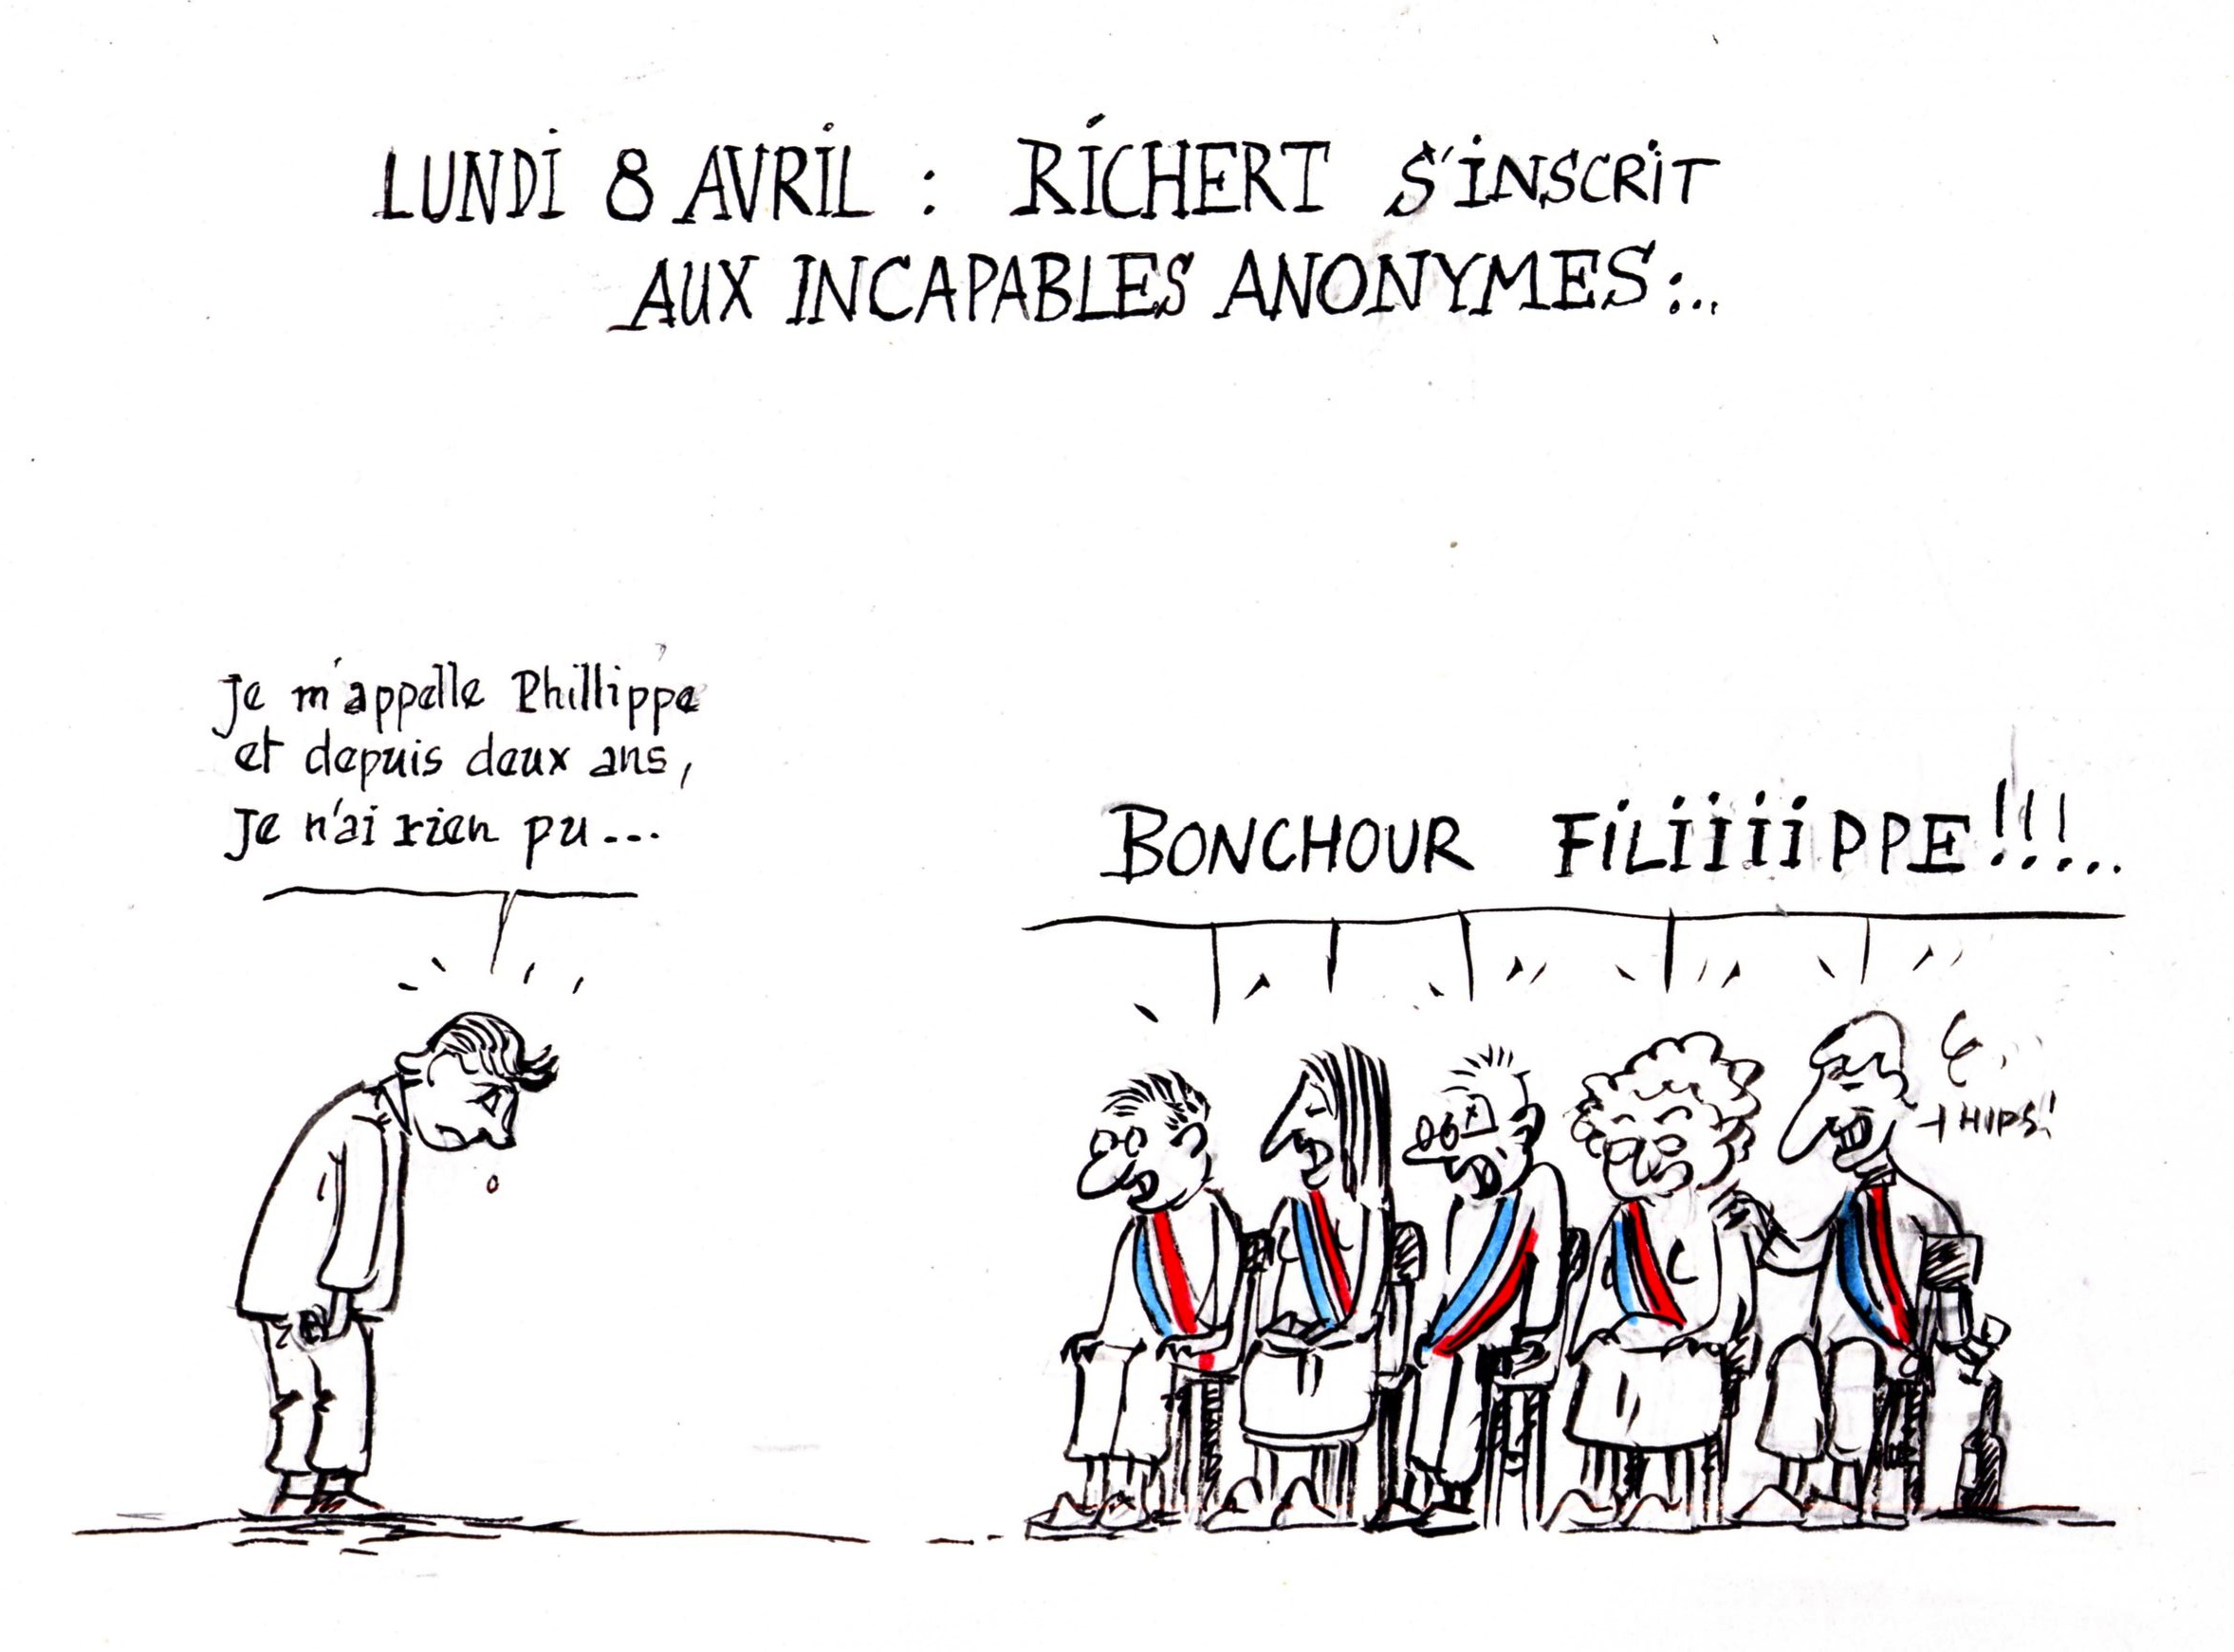 LUNDI 8 AVRIL : RICHERT S'INSCRIT
AUX INCAPABLES ANONYMES...
Je m'appelle Phillippe
et depuis deux ans,
Je n'ai rien pu...
BONCHOUR FILIIIIPPE!!!...
HIPS!